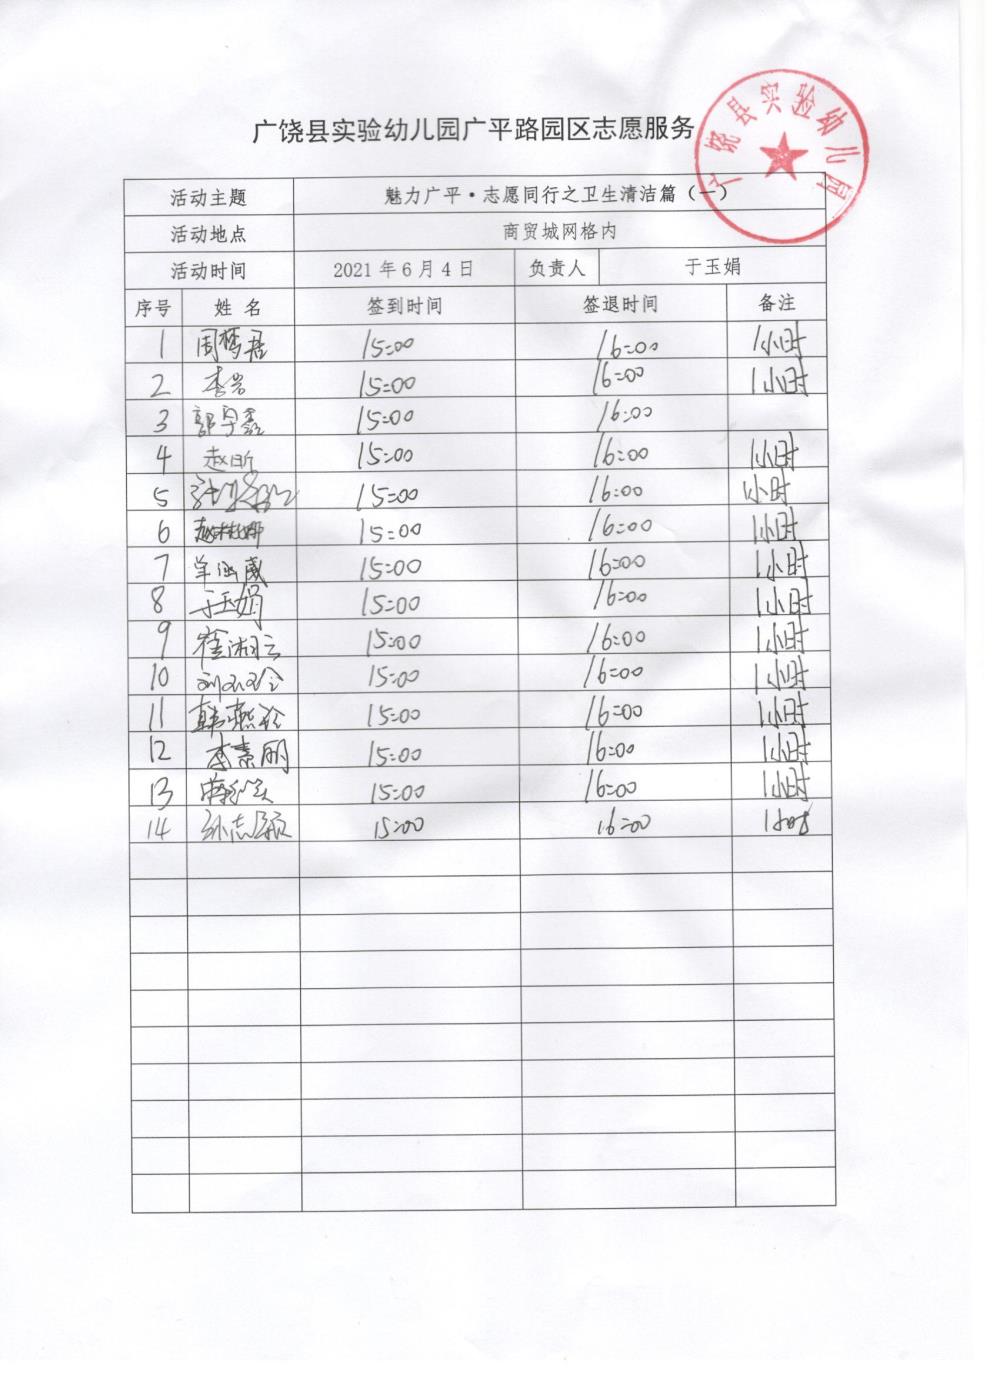 广饶县实验幼儿园
广饶县实验幼儿园广平路园区志愿服务
活动主题 魅力广平·志愿同行之卫生清洁篇（一）
活动地点 商贸城网格内
活动时间 2021年6月4日 负责人 于玉娟
序号 姓名 签到时间 签退时间 备注
1 周梦君 15:00 16:00 1小时
2 李岩 15:00 16:00 1小时
3 郭宇鑫 15:00 16:00
4 赵昕 15:00 16:00 1小时
5 15:00 16:00 1小时
6 赵杜娜 15:00 16:00 1小时
7 单涵威 15:00 16:00 1小时
8 于玉娟 15:00 16:00 1小时
9 崔湘云 15:00 16:00 1小时
10 15:00 16:00 1小时
11 韩燕玲 15:00 16:00 1小时
12 李素朋 15:00 16:00 1小时
13 15:00 16:00 1小时
14 孙志颖 15:00 16:00 1小时